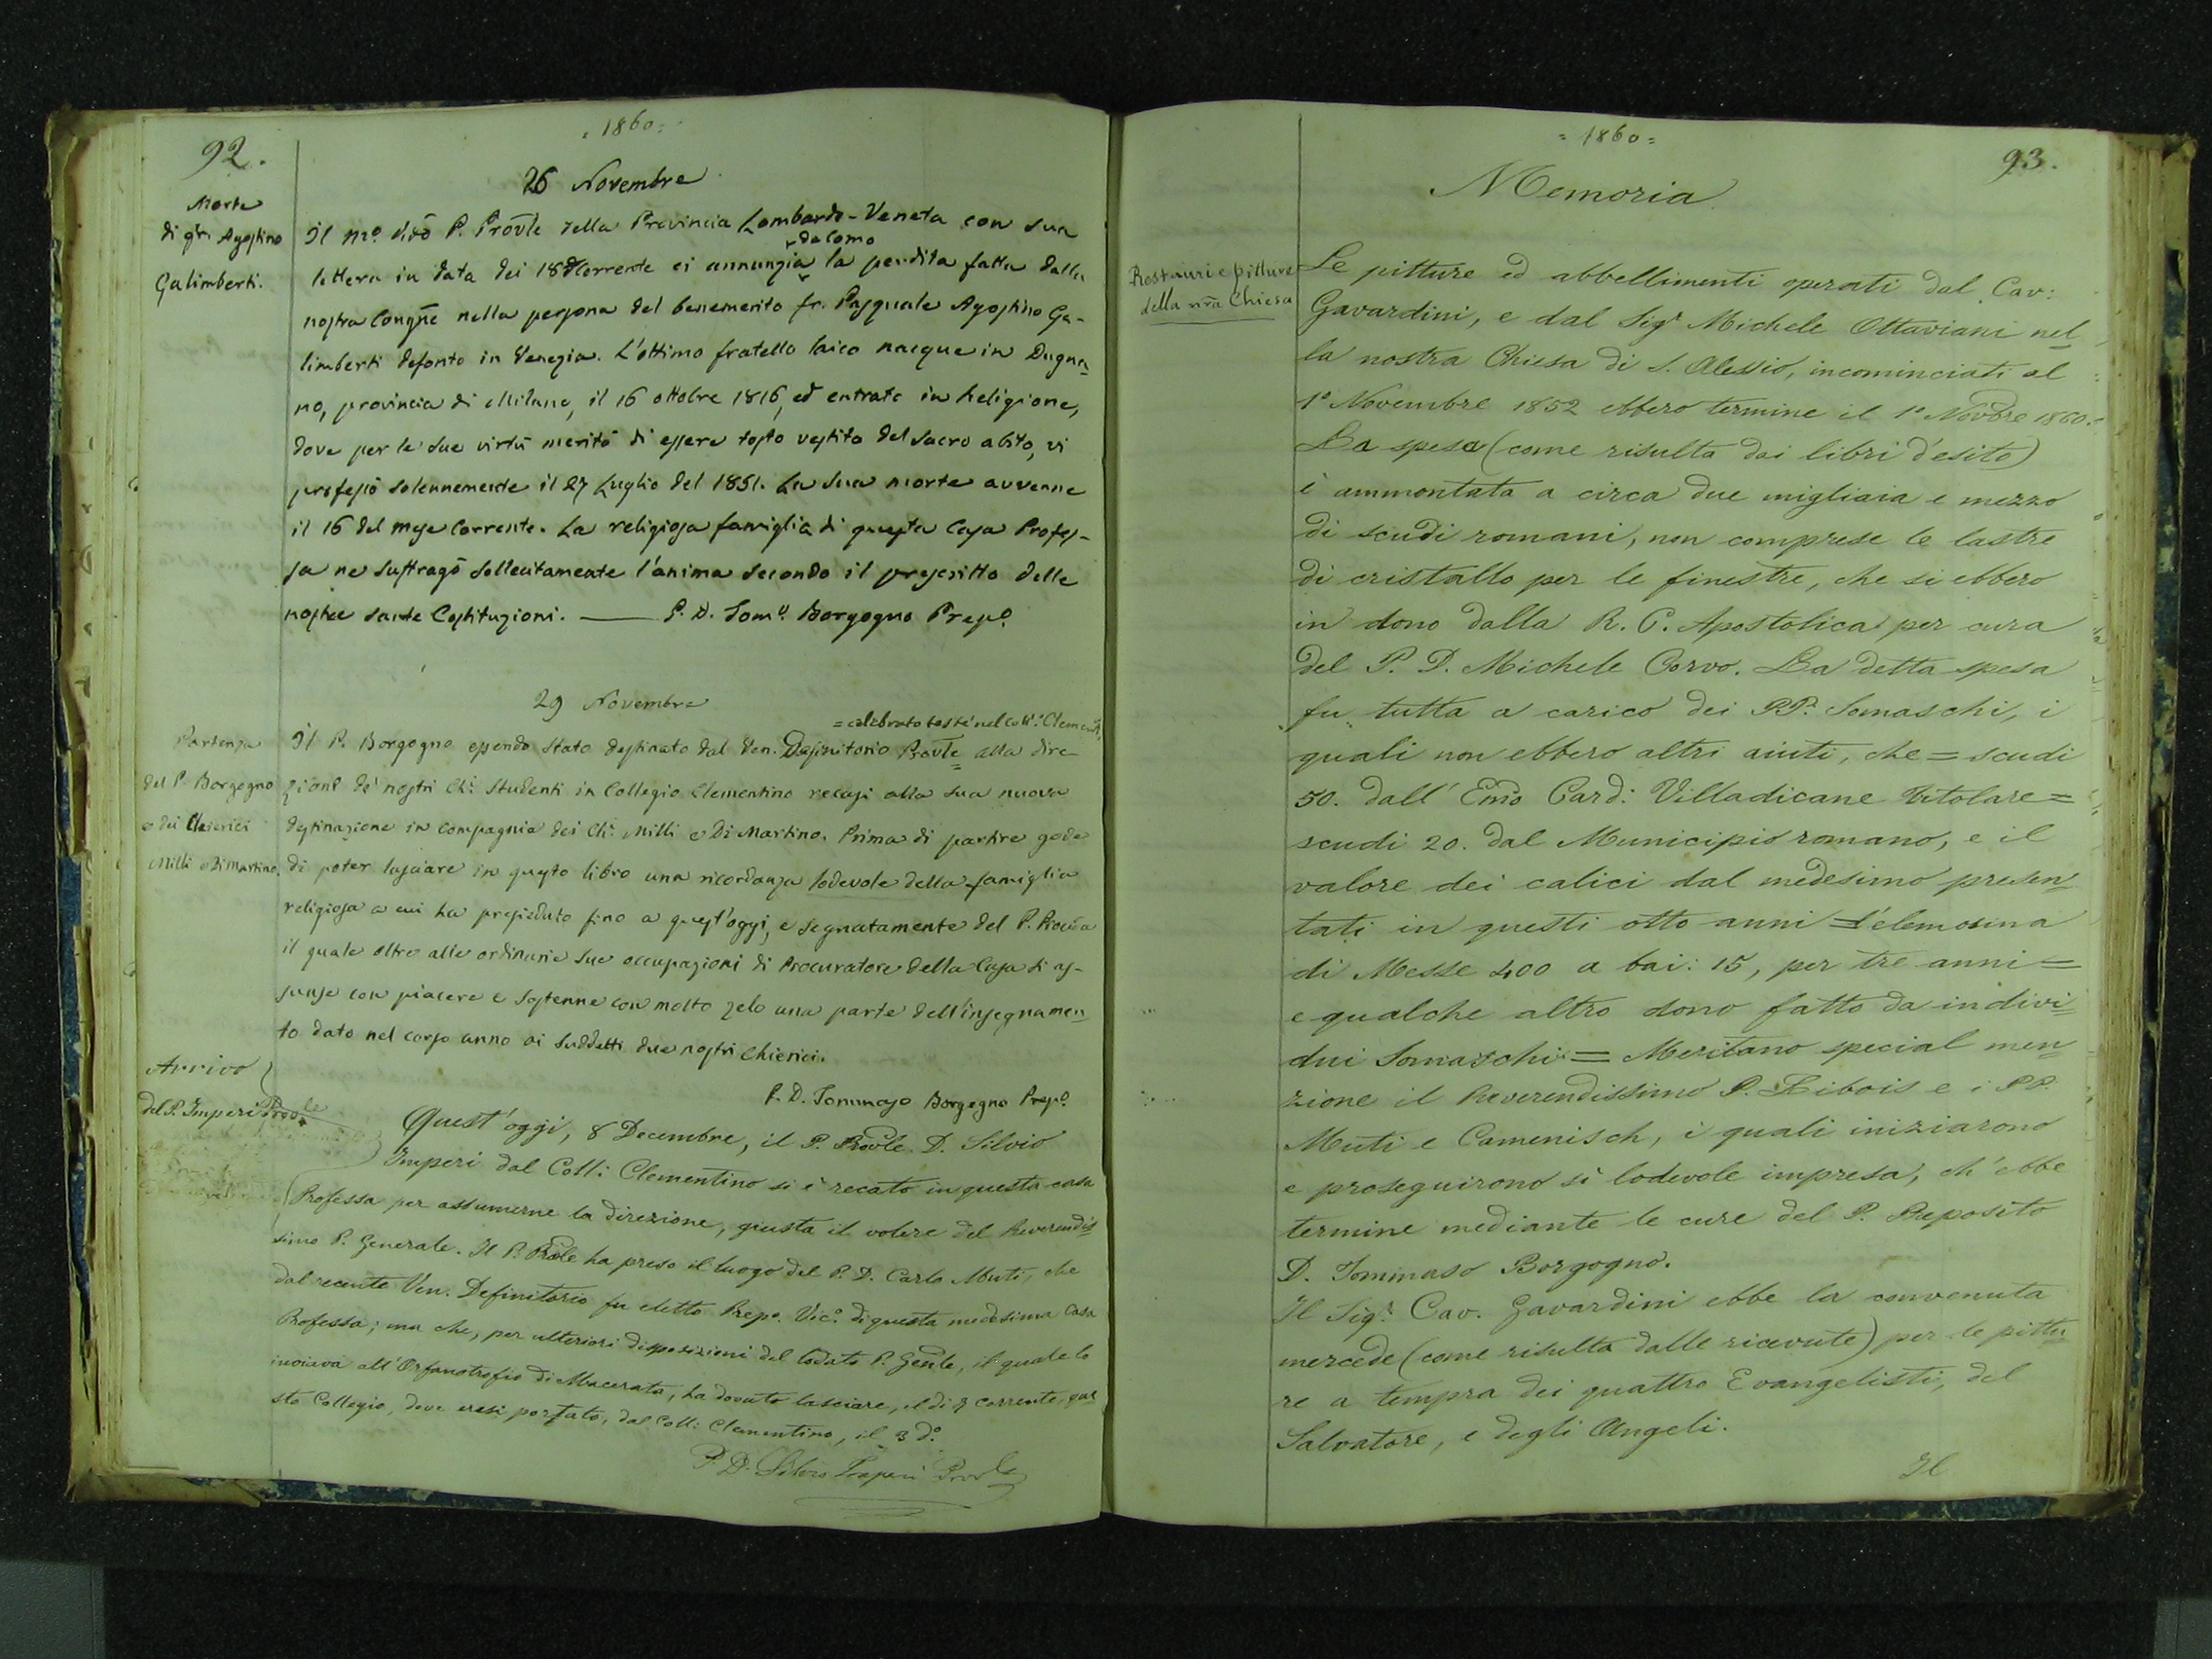 92.
= 1860 =
26 Novembre
Morte
di fr. Agostino
Galimberti.
Il M.º Rdo P. Provle della Provincia Lombardo-Veneta con sua
da Como
lettera in data dei 18 corrente ci annunzia la perdita fatta dalla
nostra Congne nella persona del benemerito fr. Pasquale Agostino Ga-
limberti defonto in Venezia. L'ottimo fratello laico nacque in Dugna=
no, provincia di Milano, il 16 ottobre 1816, ed entrato in Religione,
dove per le sue virtù meritò di essere tosto vestito del sacro abito, vi
professò solennemente il 27 Luglio del 1851. La sua morte avvenne
il 16 del mese corrente. La religiosa famiglia di questa Casa Profes-
sa ne suffragò sollecitamente l'anima secondo il prescritto delle
nostre sante Costituzioni. — P. D. Tom.º Borgogno Prep.º
29 Novembre
= celebrato testè nel Coll.º Clementº,
Partenza
del P. Borgogno
e dei Chierici
Milli e Di Martino.
Il P. Borgogno essendo stato destinato dal Ven. Definitorio Provle alla dire-
zione de' nostri Ch.i Studenti in Collegio Clementino recasi alla sua nuova
destinazione in compagnia dei Ch.i Milli e Di Martino. Prima di partire gode
di poter lasciare in questo libro una ricordanza lodevole della famiglia
religiosa a cui ha presieduto fino a quest'oggi, e segnatamente del P. Rovea
il quale oltre alle ordinarie sue occupazioni di Procuratore della Casa si as-
sunse con piacere e sostenne con molto zelo una parte dell'insegnamen=
to dato nel corso anno ai suddetti due nostri Chierici.
P. D. Tommaso Borgogno Prep.º
Arrivo
del P. Imperi Provle
Quest'oggi, 8 Decembre, il P. Provle D. Silvio
Imperi dal Coll: Clementino si è recato in questa casa
Professa per assumerne la direzione, giusta il volere del Reverendis=
simo P. Generale. Il P. Prole ha preso il luogo del P. D. Carlo Muti, che
dal recente Ven. Definitorio fu eletto Prep. Vic.º di questa medesima Casa
Professa; ma che, per ulteriori disposizioni del lodato P. Genle, il quale lo
inviava all'Orfanotrofio di Macerata, ha dovuto lasciare, il dì 7 corrente, que=
sto Collegio, dove erasi portato, dal Coll: Clementino, il 3 do.
P. D. Silvio Imperi Provle
= 1860 =
93.
Memoria
Restauri e pitture
della nra Chiesa
Le pitture ed abbellimenti operati dal Cav:
Gavardini, e dal Sigr Michele Ottaviani nel=
la nostra Chiesa di S. Alessio, incominciati al
1º Novembre 1852 ebbero termine il 1º Novbre 1860.
La spesa (come risulta dai libri d'esito)
è ammontata a circa due migliaia e mezzo
di scudi romani, non comprese le lastre
di cristallo per le finestre, che si ebbero
in dono dalla R. C. Apostolica per cura
del P. D. Michele Corvo. La detta spesa
fu tutta a carico dei PP. Somaschi, i
quali non ebbero altri aiuti, che = scudi
50. dall' Emo Card: Villadicane titolare =
scudi 20. dal Municipio romano, e il
valore dei calici dal medesimo presen=
tati in questi otto anni = l'elemosina
di Messe 400 a bai: 15, per tre anni =
e qualche altro dono fatto da indivi=
dui Somaschi = Meritano special men=
zione il Reverendissimo P. Libois e i PP.
Muti e Camenisch, i quali iniziarono
e proseguirono sì lodevole impresa, ch'ebbe
termine mediante le cure del P. Preposito
D. Tommaso Borgogno.
Il Sigr Cav. Gavardini ebbe la convenuta
mercede (come risulta dalle ricevute) per le pittu=
re a tempra dei quattro Evangelisti, del
Salvatore, e degli Angeli.
Il